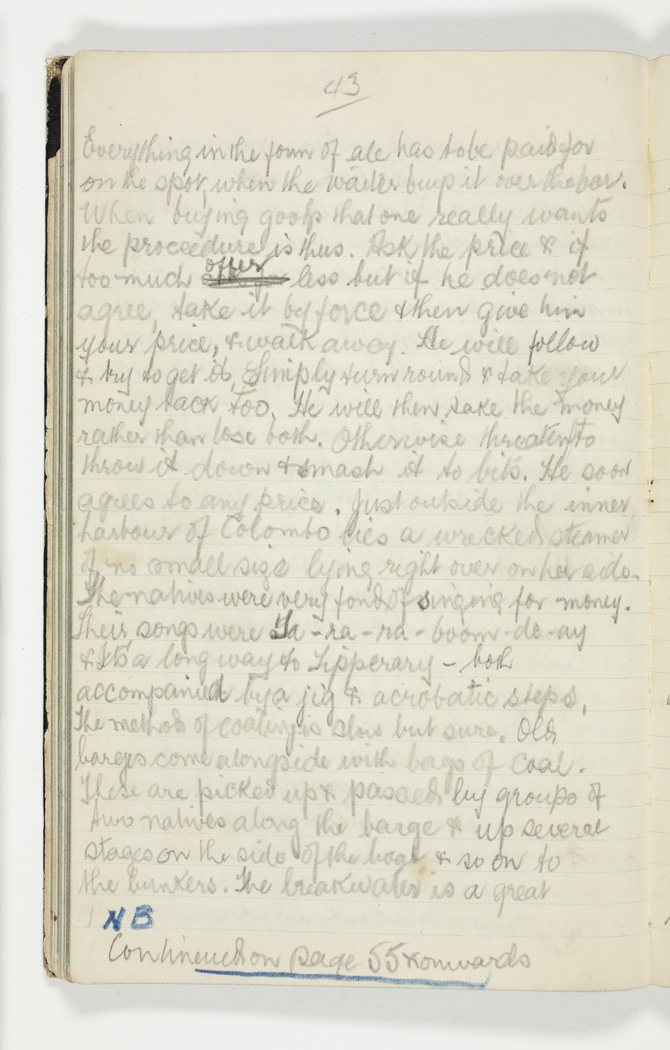 43
Everything in the form of ale has to be paid for
on the spot, when the waiter buys it over the bar.
When buying goods that one really wants
the proceedure is thus. Ask the price & if
too much offer less but if he does not
agree, take it by force & then give him
your price, & walk away. He will follow
& try to get it. Simply turn round & take your
money back too. He will then take the money
rather than lose both. Otherwise threaten to
throw it down & smash it to bits. He soon
agrees to any price. Just outside the inner
harbour of Colombo lies a wrecked steamer
of no small size lying right over on her side.
The natives were very fond of singing for money.
Their songs were Ta-ra-ra-boom-de-ay
& Its a long way to Tipperary - both
accompanied by a jig & acrobatic steps.
The method of coaling is slow but sure. Old
barges come alongside with bags of coal.
These are picked up & passed by groups of
two natives along the barge & up several
stages on the side of the boat & so on to
the bunkers. The breakwater is a great
NB
Continued on page 55 & onwards